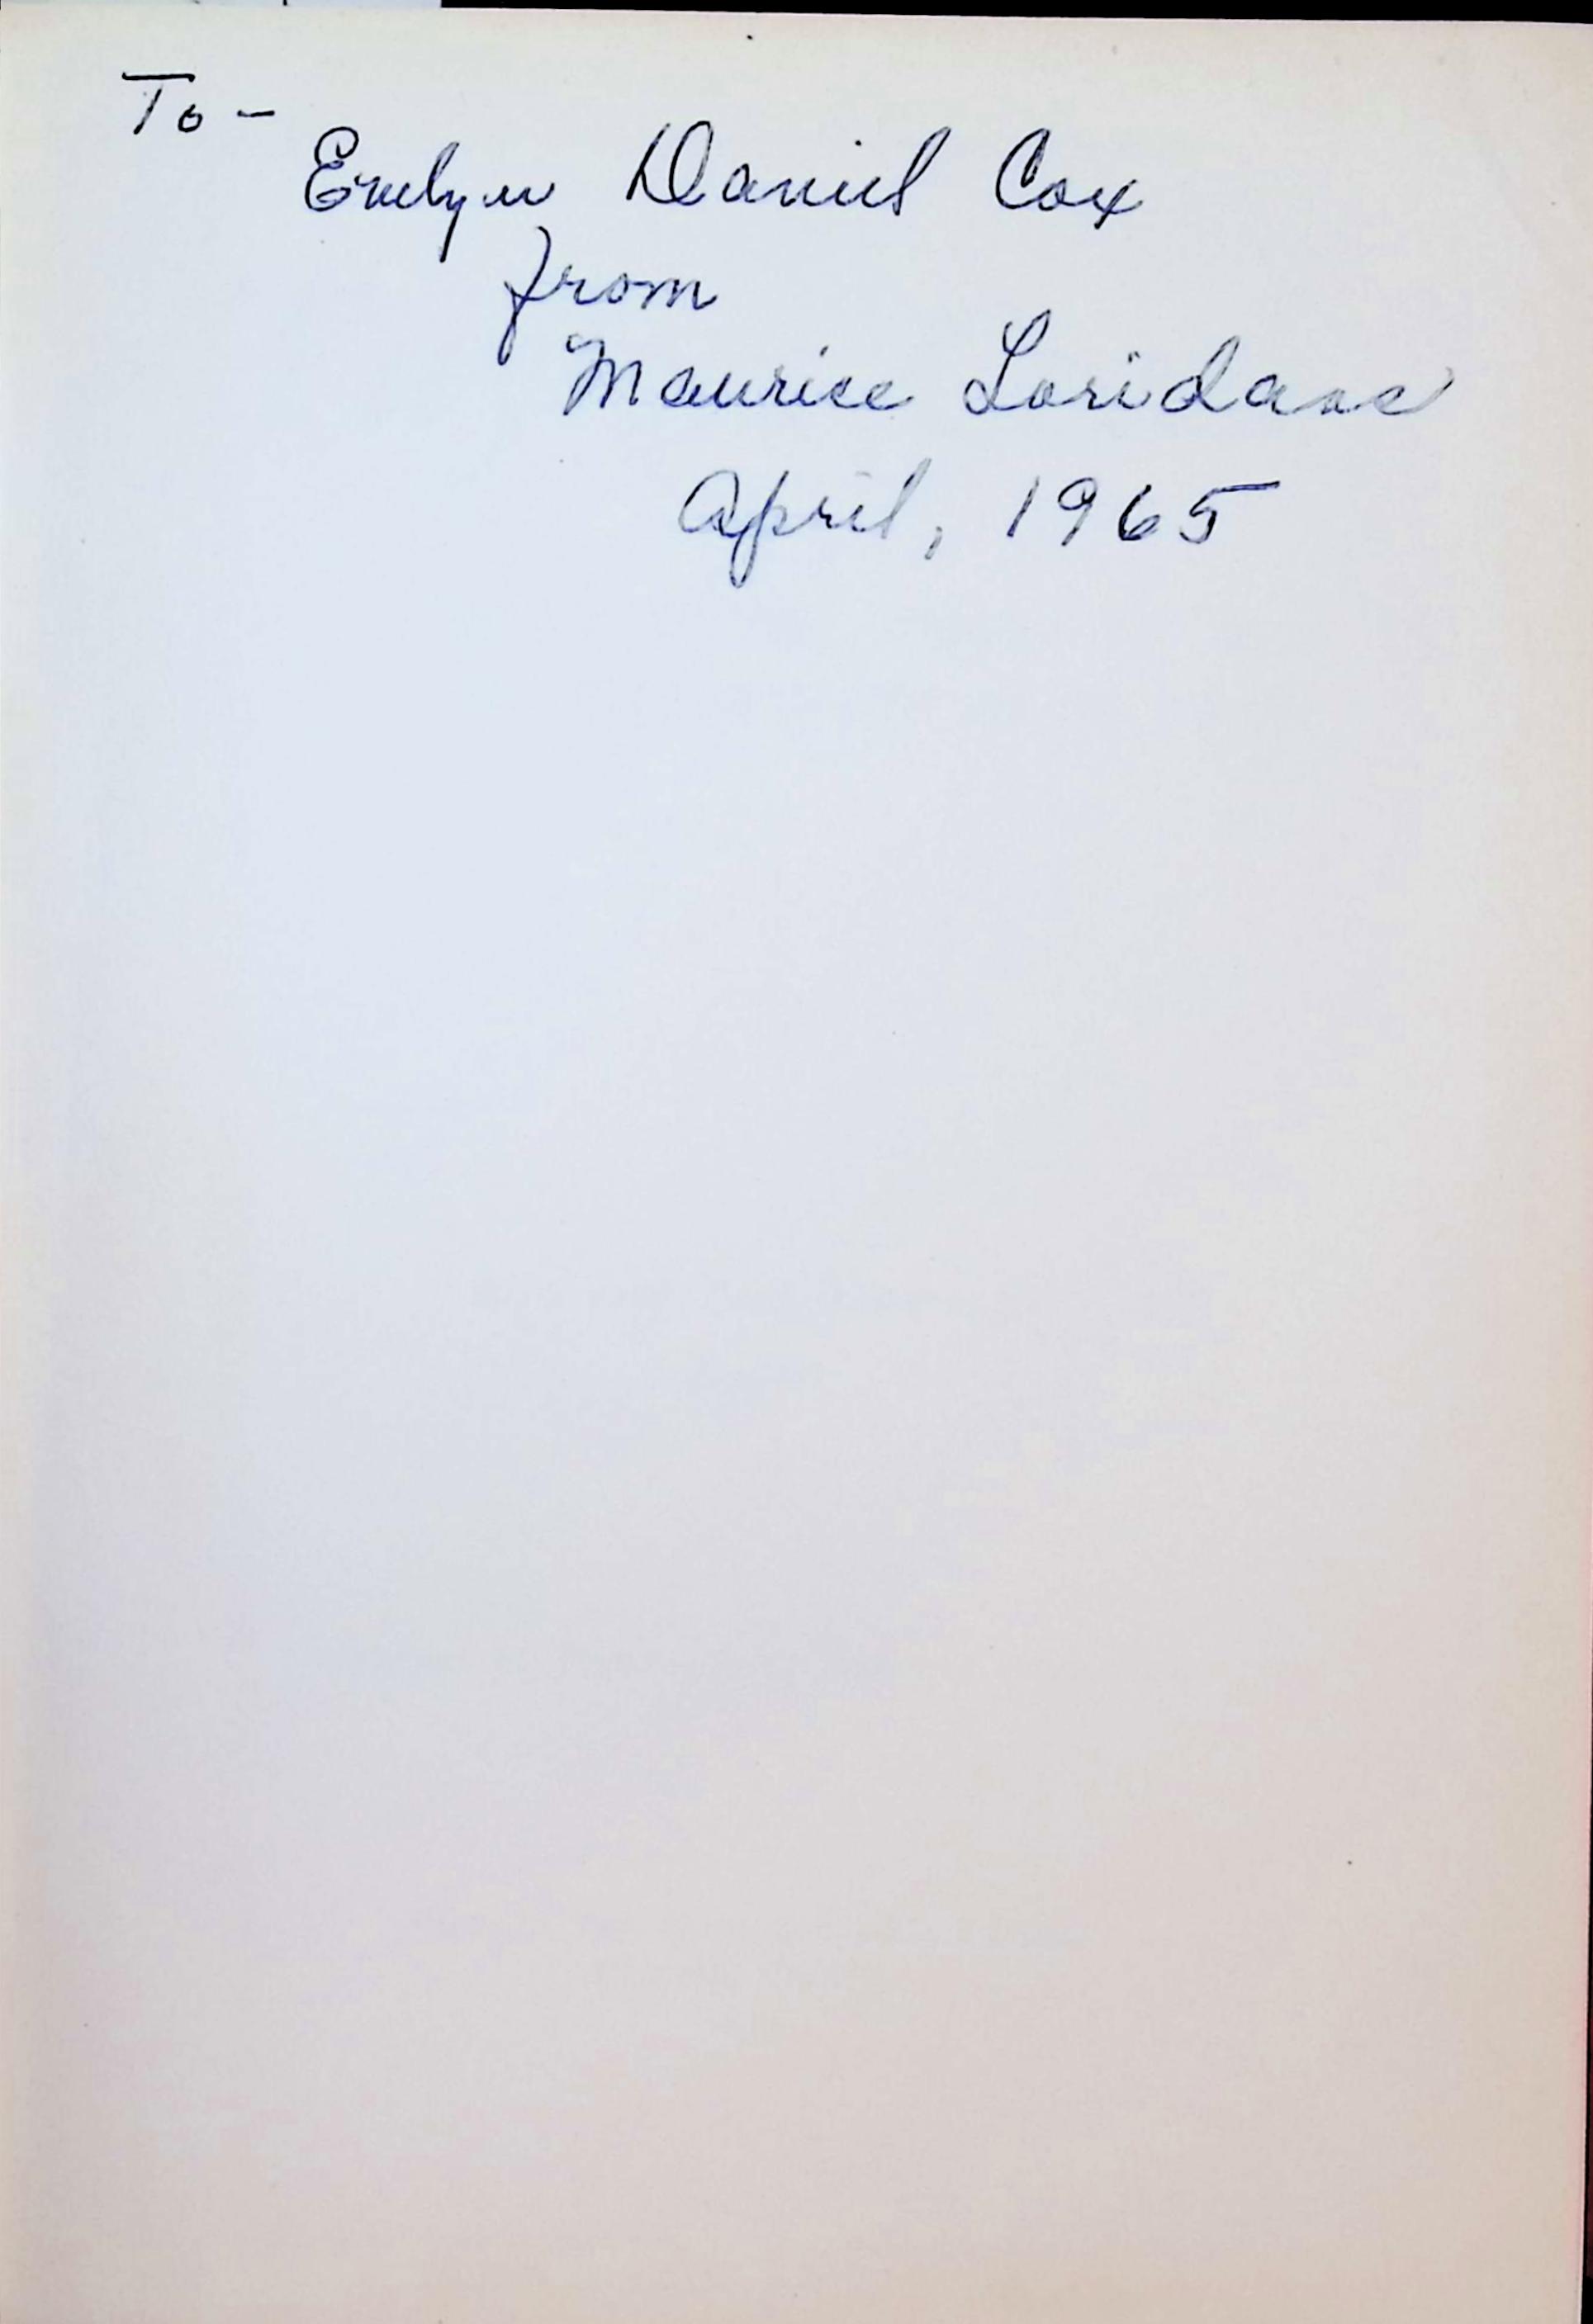 To -
Evelyn Daniel Cox
from
Maurice Loridans
April, 1965